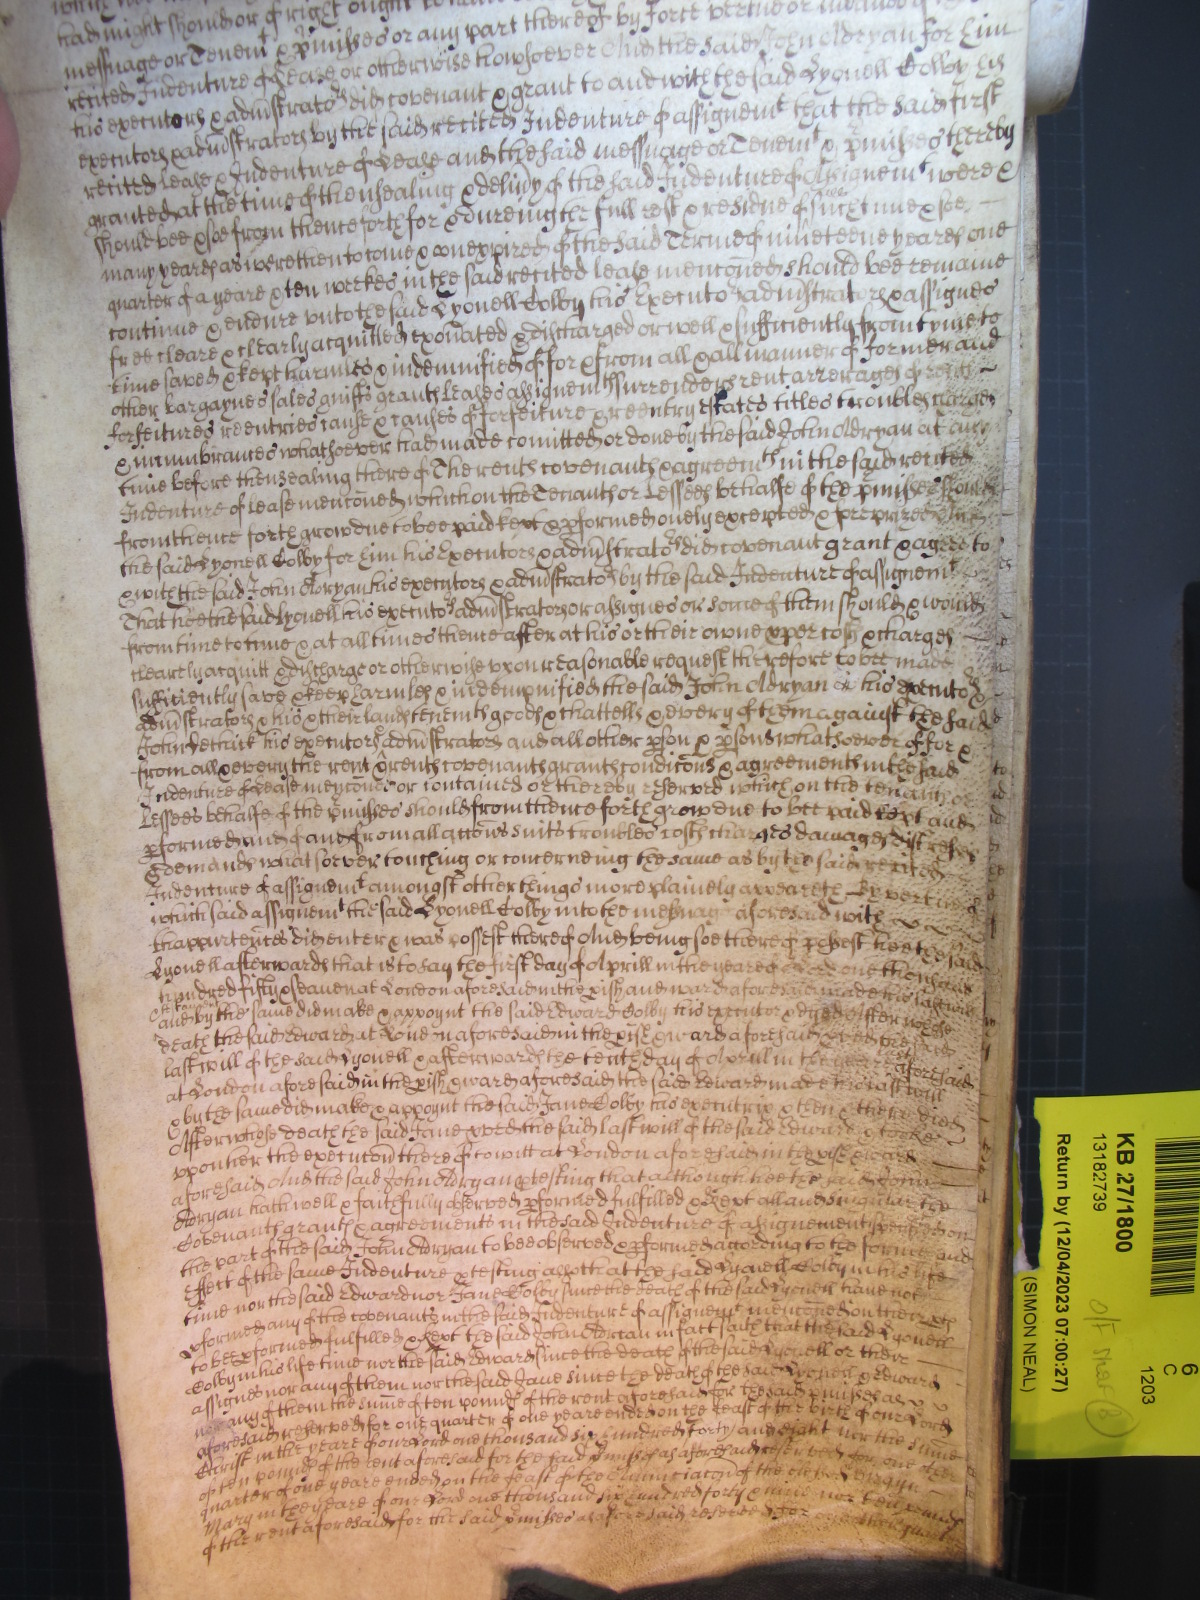 had might should or of right ought to have
messuage or Tenemt & pmisses or any part thereof by force vertue or meanes of
recited Indenture of Lease or otherwise howsoever And the said John Aldryan for him
his executors & administrators did covenant & grant to and with the said Lyonell Colby his
executors & administrators by the said recited Indenture of assignemt that the said first
recited lease & Indenture of Lease and the said messuage or Tenemt & pmisses thereby
granted at the time of thensealing & delivy of the said Indenture of Assignemt were &
should bee & soe from thenceforth for & dureing the full rest & residue of such time & soe
many yeares as were then to come & unexpired of the said Terme of nineteene yeares one
quarter of a yeare & ten weekes in the said recited lease menconed should bee remaine
continue & endure unto the said Lyonell Colby his Executors administrators & assignes
free cleare & clearly acquitted exonated & discharged or well & sufficiently from tyme to
time saved & kept harmles & indemnified of for & from all & all manner of former and
other bargaynes sales guifts grants Leases assignemts surrenders rent arrerages of rents
forfeitures reentries cause & causes of forfeiture & reentry estates titles troubles charges
& incumbrances whatsoever had made comitted or done by the said John Aldryan at any
time before thensealing thereof The rents covenants & agreemts in the said recited
Indenture of lease menconed which on the Tenants or Lessees behalfe of the pmisses should
from thence forth grow due to bee paid kept & pformed onely excepted & foreprized And
the said Lyonell Colby for him his Executors & administrators did covenant grant & agree to
& with the said John Aldryan his executors & administrators by the said Indenture of assignemt
That hee the said Lyonell his executors administrators or assignes or some of them should & would
from time to time & at all times thence after at his or their owne pper costs & charges
clearely acquitt & discharge or otherwise upon reasonable request therefore to bee made
sufficiently save & keep harmles & indempnified the said John Aldryan his executors
administrators & his & their lands tenemts goods & chattells & every of them against the said
John Jethick his executors administrators and all other pson & psons whatsoever of for &
from all & every the rent & rents covenants grants condicons & agreements in the said
Indenture of Lease menconed or contained or thereby reserved which on the tenants or
Lessees behalfe of the pmisses should from thence forth grow due to bee paid kept and
pformed and of and from all accons suits troubles costs charges damages distresses
& demands whatsoever touching or concerneing the same as by the said recited
Indenture of assignemt amongst other things more plainely appeareth By vertue of
which said assignemt the said Lyonell Colby into the messuage aforesaid with
thappurtences did enter & was possest thereof And being soe thereof possest hee the said
Lyonell afterwards that is to say the first day of Aprill in the yeare of our Lord one thousand
hundred fifty & seaven at London aforesaid in the pish and ward aforesaid made his last will
and by the same did make & appoynt the said Edward Colby his executor & dyed After whose
death the said Edward at London aforesaid in the pish & ward aforesaid proved the said
last will of the said Lyonell & afterwards the tenth day of Aprill in the yeare last aforesaid
at London aforesaid in the pish & ward aforesaid the said Edward made his last will
& by the same did make & appoynt the said Jane Colby his executrix & then & there died
After whose death the said Jane proved the said last will of the said Edward & tooke
upon her the execucon thereof to witt at London aforesaid in the pish & ward
aforesaid And the said John Aldryan ptesting that although hee the said John
Aldryan hath well & faithfully observed pformed fulfilled & kept all and singuler the
Covenants grants & agreements in the said Indenture of assignement specifyed on
the part of the said John Aldryan to bee observed & pformed according to the forme and
effect of the same Indenture & ptesting alsoe that the said Lyonell Colby in his life
time nor the said Edward nor Jane Colby since the death of the said Lyonell have not
pformed any of the covenants in the said Indenture of assignemt menconed on their pts
to bee pformed fulfilled & kept the said John Aldryan in fact saith that the said Lyonell
Colby in his life time nor the said Edward since the death of the said Lyonell or their
assignes nor any of them nor the said Jane since the death of the said Lyonell & Edward
nor any of them the summe of ten pounds of the rent aforesaid for the said pmisses as
aforesaid reserved for one quarter of one yeare ended on the feast of the birth of our Lord
Christ in the yeare of our Lord one thousand six hundred forty and eight nor the summe
of ten pounds of the rent aforesaid for the said pmisses as aforesaid reserved for one other
quarter of one yeare ended on the feast of the Annunciacon of the blessed Virgin
Mary in the yeare of our Lord one thousand six hundred forty & nine nor ten pounds
of the rent aforesaid for the said pmisses as aforesaid reserved for one other quarter
KB 27/1800
13182739
Return by (12/04/2023 07:00:27)
(SIMON NEAL)
6
C
1203